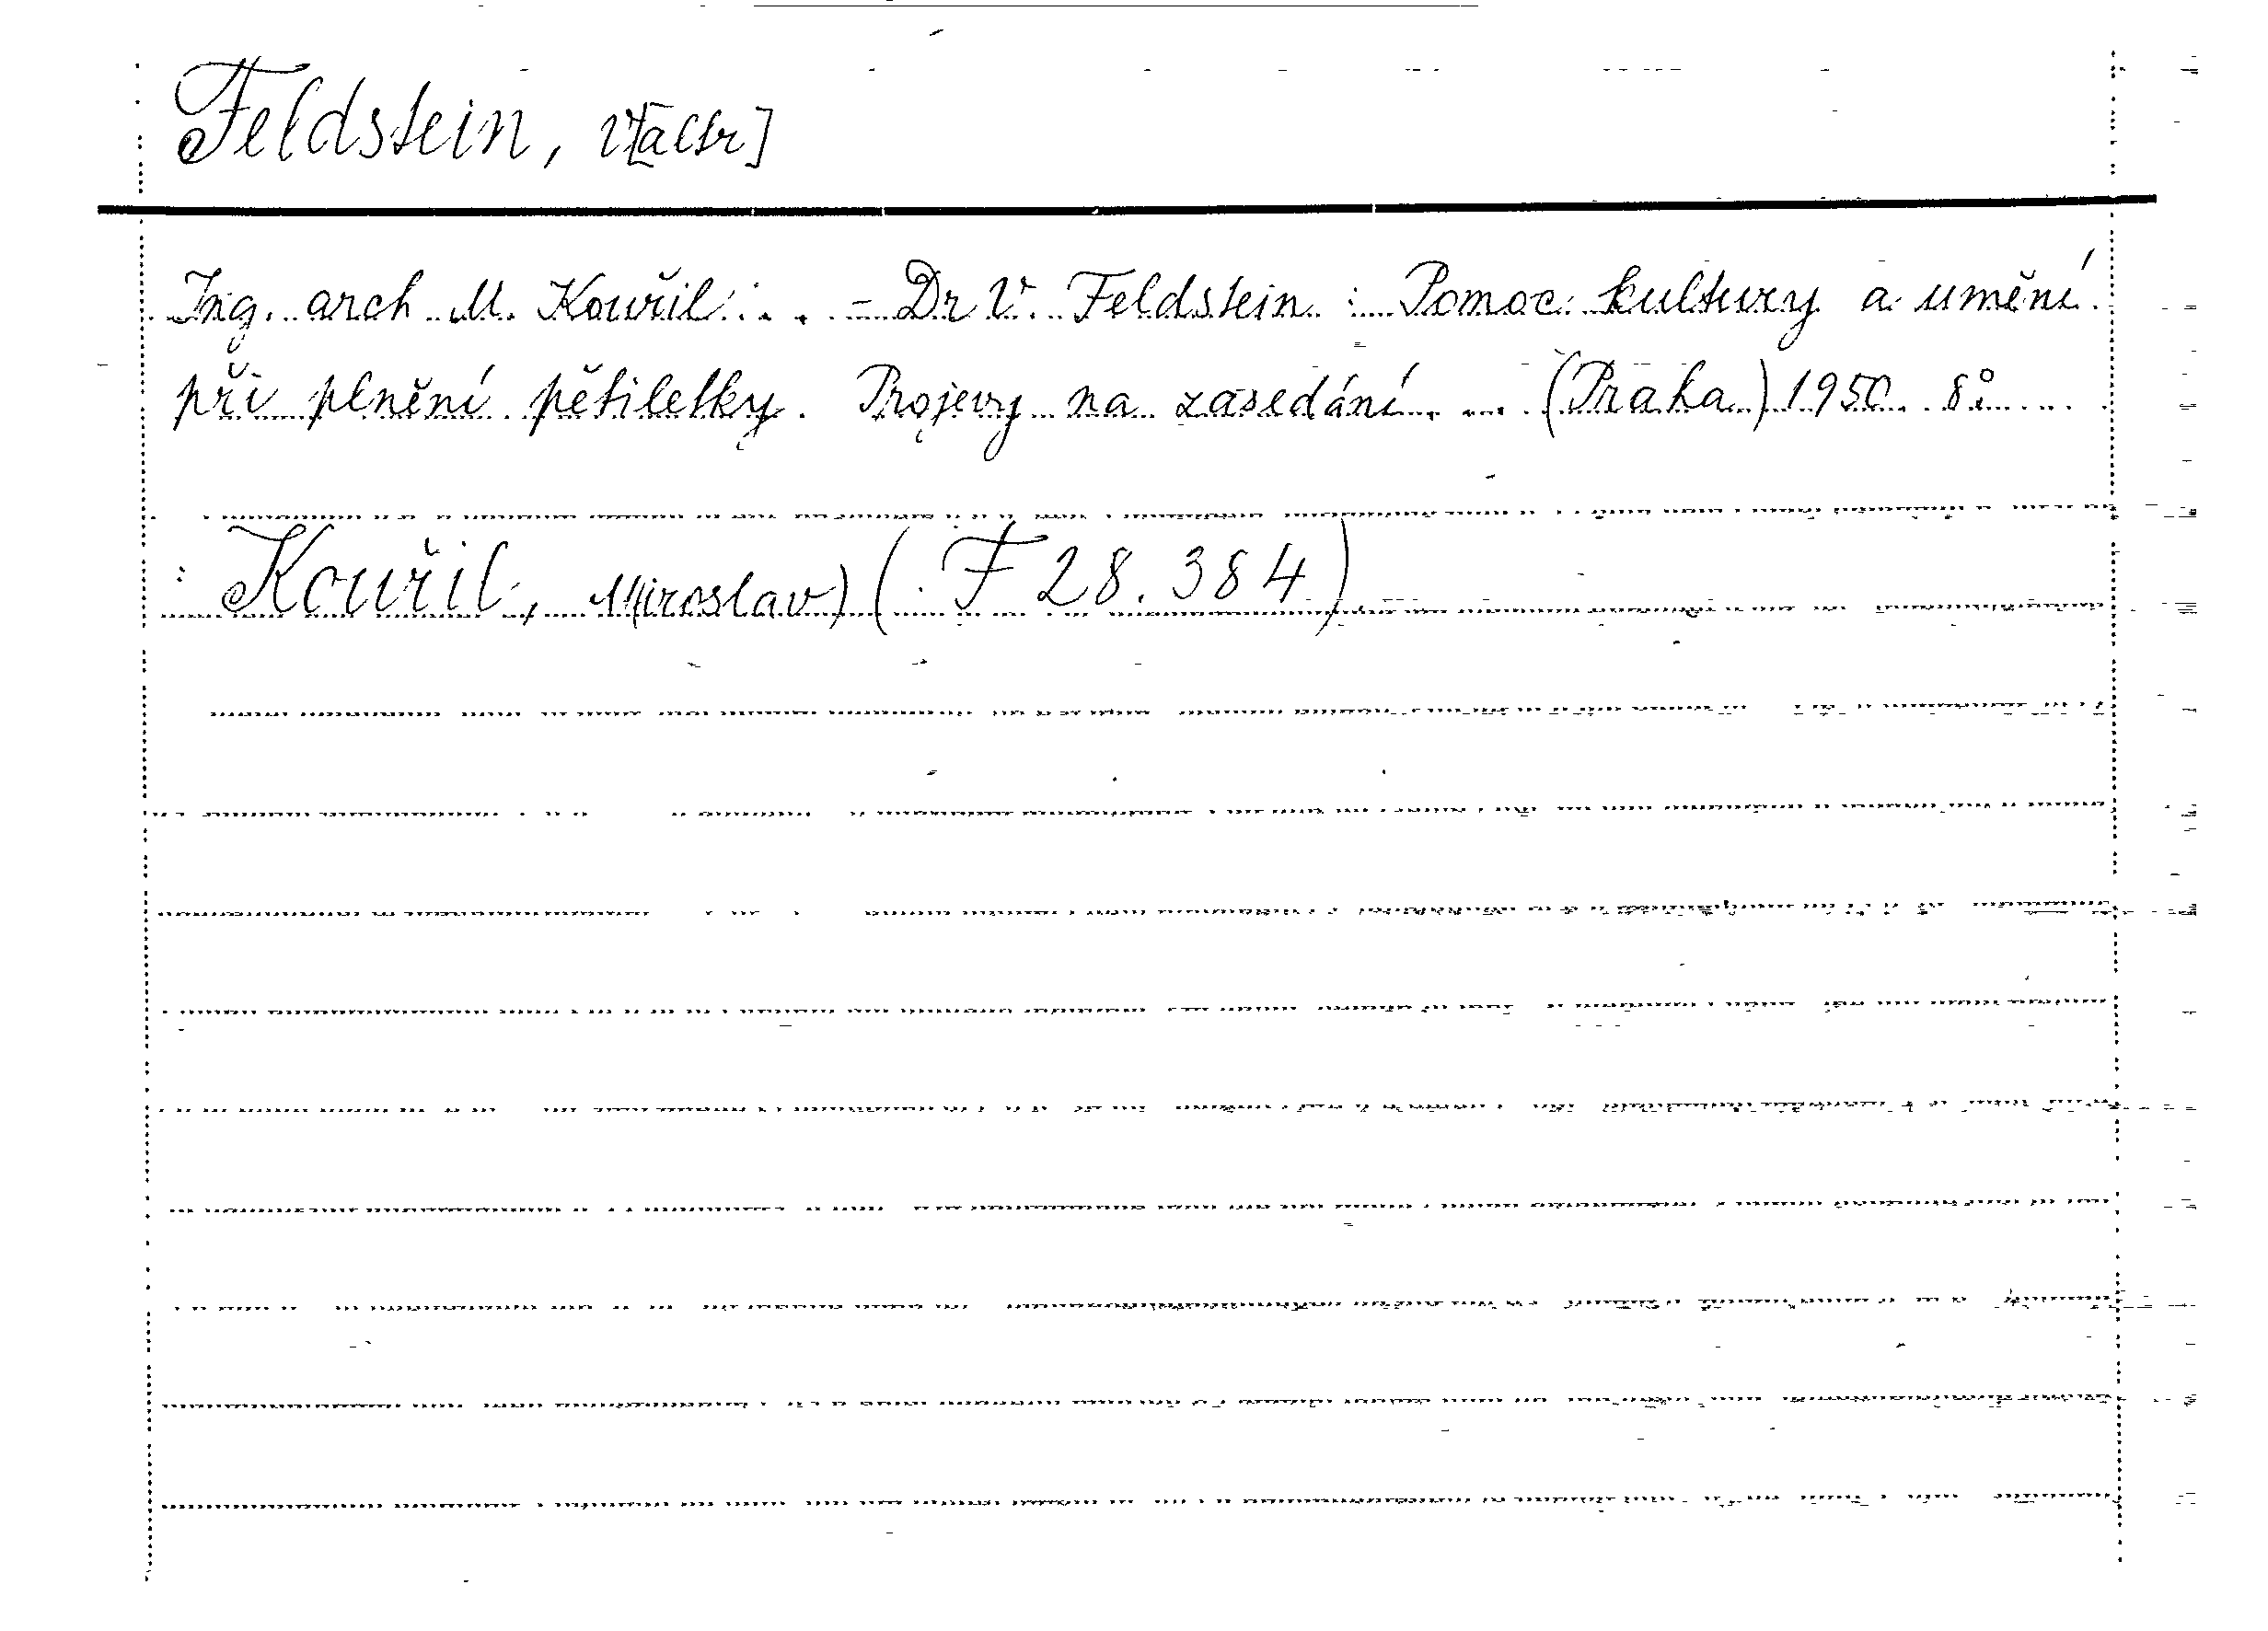 Feldstein, V[altr]
Ing. arch M. Kouřil: .. - Dr V. Feldstein : Pomoc kultury a umění
při plnění pětiletky. Projevy na zasedání ... (Praha) 1950. 8°.
: Kouřil, Miroslav) (F 28.384)